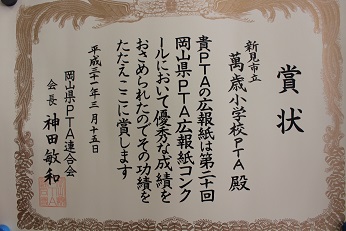 賞状
新見市立
萬歳小学校PTA殿
貴PTAの広報紙は第二十回
岡山県PTA広報紙コンク
ールにおいて優秀な成績を
おさめられたのでその功績を
たたえここに賞します
平成三十一年三月十五日
岡山県PTA連合会
会長 神田敏和